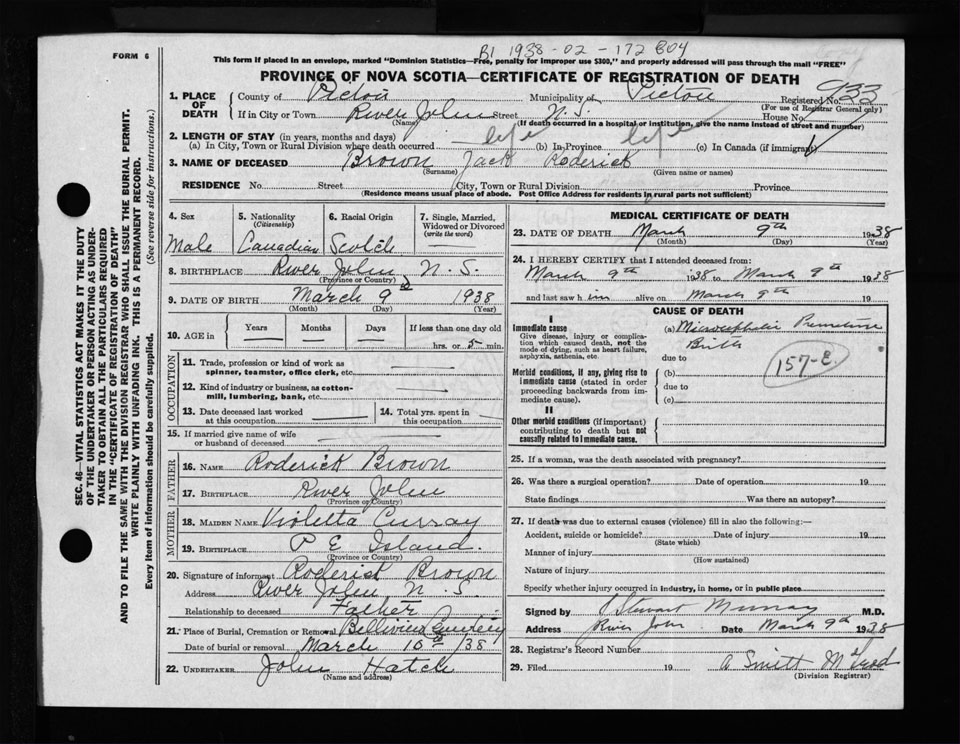 B1 1938-02-172804
FORM 6
This form if placed in an envelope, marked "Dominion Statistics—Free, penalty for improper use $300," and properly addressed will pass through the mail "FREE"
PROVINCE OF NOVA SCOTIA—CERTIFICATE OF REGISTRATION OF DEATH
1. PLACE OF DEATH County of Pictou Municipality of Pictou Registered No. 933
(For use of Registrar General only)
If in City or Town River John Street N.S House No.
(Name) (If death occurred in a hospital or institution, give the name instead of street and number)
2. LENGTH OF STAY (in years, months and days)
(a) In City, Town or Rural Division where death occurred life (b) In Province life (c) In Canada (if immigrant)
3. NAME OF DECEASED Brown Jack Roderick
(Surname) (Given name or names)
RESIDENCE No. Street City, Town or Rural Division Province
(Residence means usual place of abode. Post Office Address for residents in rural parts not sufficient)
SEC. 46—VITAL STATISTICS ACT MAKES IT THE DUTY
OF THE UNDERTAKER OR PERSON ACTING AS UNDER-
TAKER TO OBTAIN ALL THE PARTICULARS REQUIRED
IN THE "CERTIFICATE OF REGISTRATION OF DEATH"
AND TO FILE THE SAME WITH THE DIVISION REGISTRAR WHO SHALL ISSUE THE BURIAL PERMIT.
WRITE PLAINLY WITH UNFADING INK. THIS IS A PERMANENT RECORD.
Every item of information should be carefully supplied. (See reverse side for instructions.)
4. Sex 5. Nationality (Citizenship) 6. Racial Origin 7. Single, Married, Widowed or Divorced (write the word)
Male Canadian Scotch
8. BIRTHPLACE River John N.S.
(Province or Country)
9. DATE OF BIRTH March 9 1938
(Month) (Day) (Year)
10. AGE in Years Months Days If less than one day old
hrs. or 5 min.
OCCUPATION
11. Trade, profession or kind of work as
spinner, teamster, office clerk, etc.
12. Kind of industry or business, as cotton-
mill, lumbering, bank, etc.
13. Date deceased last worked
at this occupation
14. Total yrs. spent in
this occupation
15. If married give name of wife
or husband of deceased
FATHER
16. NAME Roderick Brown
17. BIRTHPLACE River John
(Province or Country)
MOTHER
18. MAIDEN NAME Violetta Curray
19. BIRTHPLACE P E Island.
(Province or Country)
20. Signature of informant Roderick Brown
Address River John N.S.
Relationship to deceased Father
21. Place of Burial, Cremation or Removal
Date of burial or removal March 10th 1938
22. UNDERTAKER John Hatch
(Name and address)
MEDICAL CERTIFICATE OF DEATH
23. DATE OF DEATH March 9th 1938
(Month) (Day) (Year)
24. I HEREBY CERTIFY that I attended deceased from:
March 9th 1938 to March 9th 1938
and last saw him alive on March 9th 19
CAUSE OF DEATH
I
Immediate cause
Give disease, injury or complication
which caused death, not the
mode of dying, such as heart failure,
asphyxia, asthenia, etc.
(a) Microcephalic Premature
Birth
due to
157-E
Morbid conditions, if any, giving rise to
immediate cause (stated in order
proceeding backwards from immediate
cause).
(b)
due to
(c)
II
Other morbid conditions (if important)
contributing to death but not
causally related to immediate cause.
25. If a woman, was the death associated with pregnancy?
26. Was there a surgical operation? Date of operation 19
State findings Was there an autopsy?
27. If death was due to external causes (violence) fill in also the following:—
Accident, suicide or homicide? Date of injury 19
(State which)
Manner of injury
(How sustained)
Nature of injury
Specify whether injury occurred in industry, in home, or in public place
Signed by J Stewart Murray M.D.
Address River John Date March 9th 1938
28. Registrar's Record Number
29. Filed 19 A Smitt McLeod
(Division Registrar)